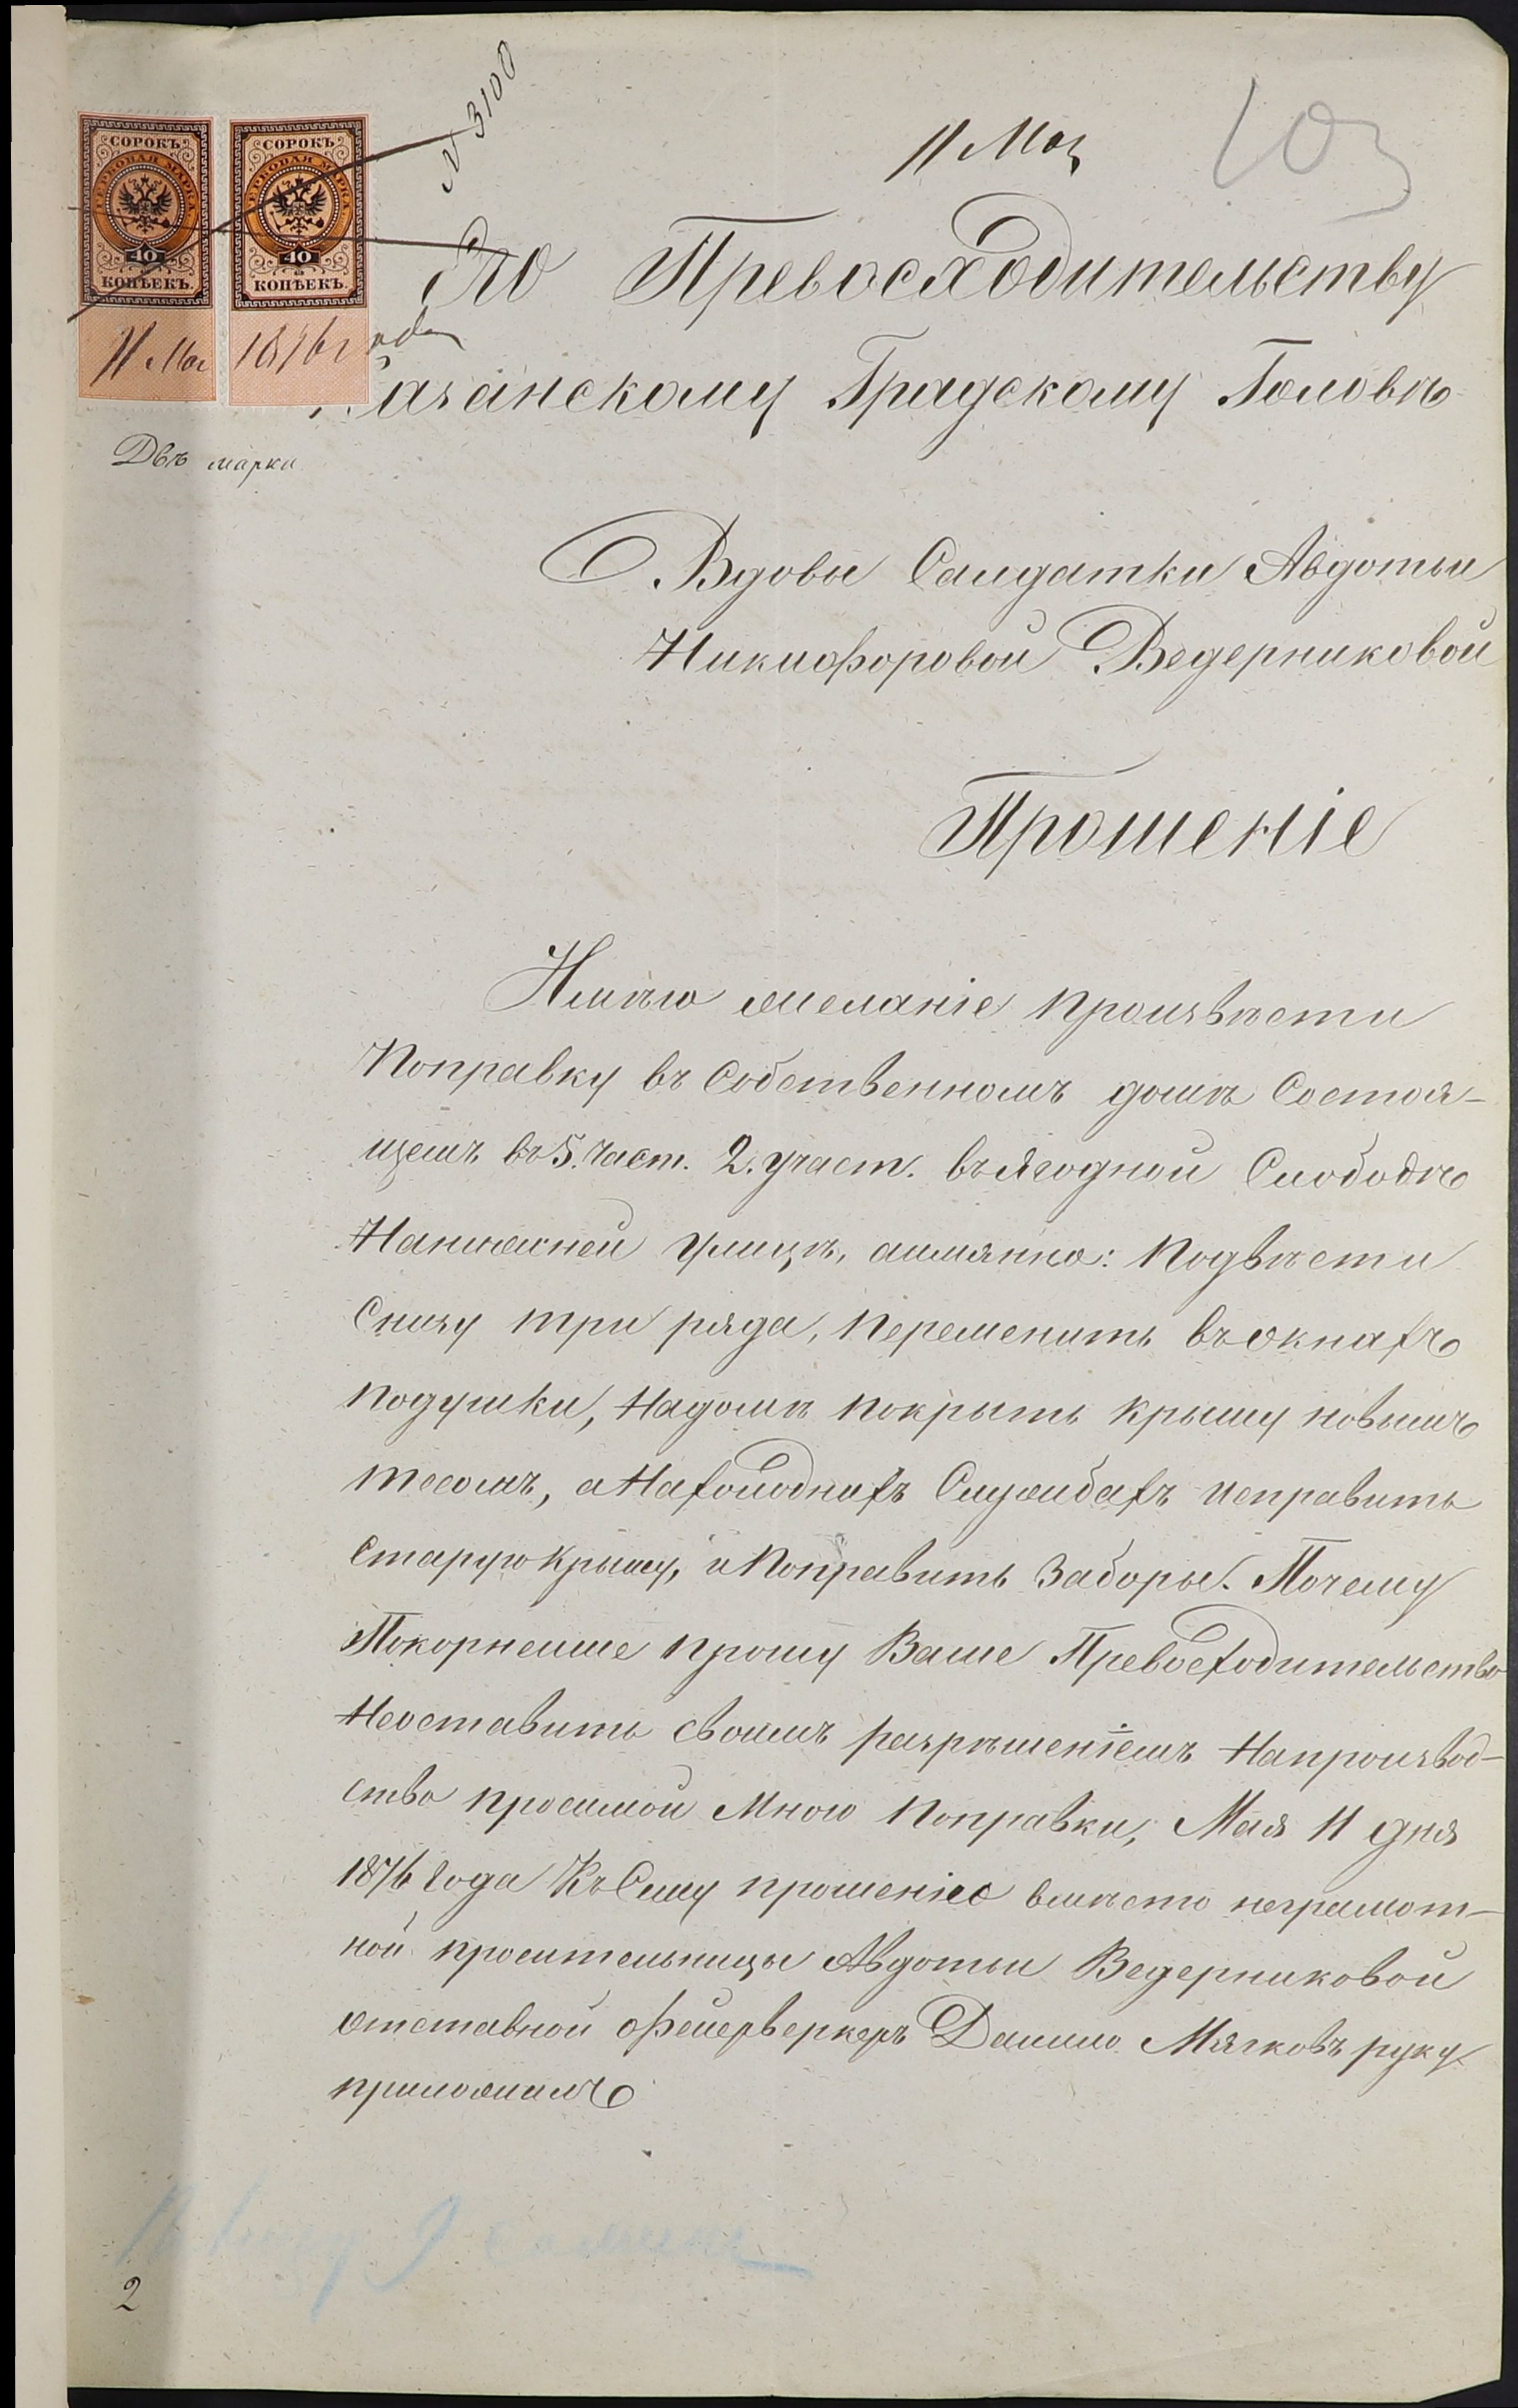 № 3100
11 Мая
СОРОКЪ
ГЕРБОВАЯ МАРКА
40
КОПѢЕКЪ.
СОРОКЪ
ГЕРБОВАЯ МАРКА
40
КОПѢЕКЪ.
11 Мая 1876 г года
Его Превосходительству
Казанскому Градскому Головѣ
Двѣ марки
Вдовы Салдатки Авдотьи
Никифоровой Ведерниковой
Прошеніе
Имѣю желаніе произвѣсти
Поправку въ Собственномъ домѣ Состоя-
щемъ въ 5. Част. 2. участ. въ Ягодной Слободѣ
На нижней улицѣ, аимянно: Подвѣсти
Снизу три ряда, Переменить въ окнахъ
Подушки, На домѣ Покрыть Крышу новымъ
тесомъ, а На холодныхъ Службахъ исправить
Старую Крышу, и Поправить Заборы. Почему
Покорнеише прошу Ваше Превосходительство
Неоставить своимъ разрѣшеніемъ На производ-
ство просимой Мною Поправки, Мая 11 дня
1876 Года Къ Сему прошенію вмѣсто неграмот-
ной просительницы Авдотьи Ведерниковой
отставной фейерверкеръ Данило Мягковъ руку
приложилъ
2